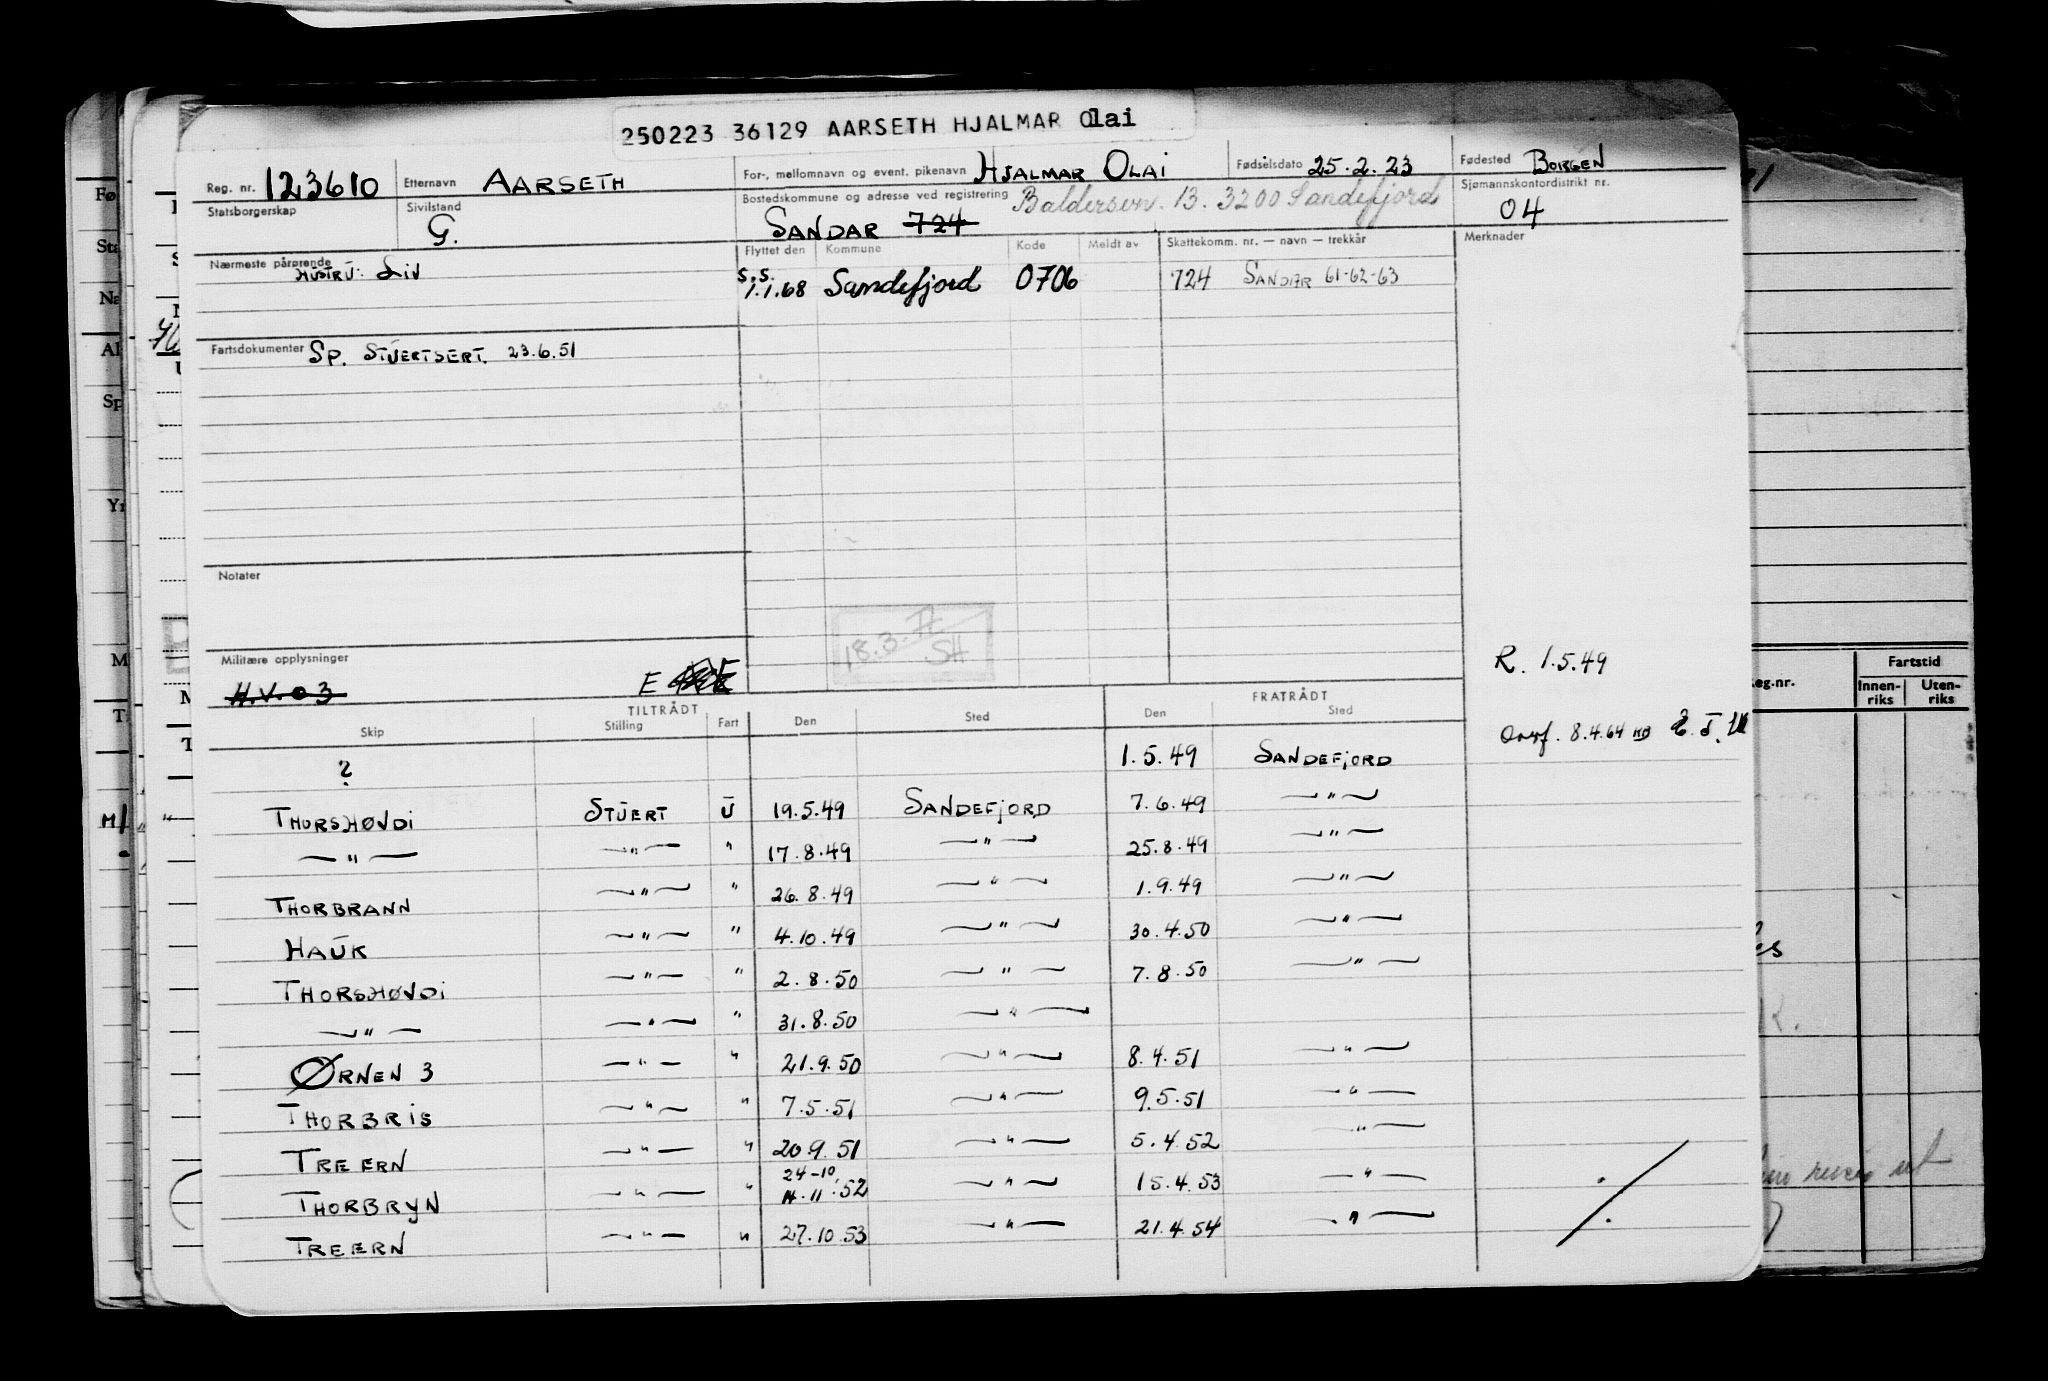 250223 36129 AARSETH HJALMAR Olai
Reg. nr. 123610 Etternavn AARSETH For-, mellomnavn og event. pikenavn HJALMAR OLAI Fødselsdato 25.2.23 Fødested BORGEN
Statsborgerskap Sivilstand G. Bostedskommune og adresse ved registrering SANDAR 724 Baldersvn. 13. 3200 Sandefjord Sjømannskontordistrikt nr. 04
Nærmeste pårørende HUSTRU: LIV
Flyttet den Kommune Kode Meldt av Skattekomm. nr. — navn — trekkår Merknader
S.S. 1.1.68 Sandefjord 0706 724 SANDAR 61-62-63
Fartsdokumenter SP. STUERTSERT. 23.6.51
Notater
18.3.77 SH
Militære opplysninger
H.V. 03 E
R. 1.5.49
Overf. 8.4.64
TILTRÅDT FRATRÅDT
Skip Stilling Fart Den Sted Den Sted
? 1.5.49 SANDEFJORD
THORSHØVDI STUERT U 19.5.49 SANDEFJORD 7.6.49 — " —
— " — — " — " 17.8.49 — " — 25.8.49 — " —
THORBRANN — " — " 26.8.49 — " — 1.9.49 — " —
HAUK — " — " 4.10.49 — " — 30.4.50 — " —
THORSHØVDI — " — " 2.8.50 — " — 7.8.50 — " —
— " — — " — " 31.8.50 — " —
ØRNEN 3 — " — " 21.9.50 — " — 8.4.51 — " —
THORBRIS — " — " 7.5.51 — " — 9.5.51 — " —
TREERN — " — " 20.9.51 — " — 5.4.52 — " —
24-10
THORBRYN — " — " 14.11.52 — " — 15.4.53 — " —
TREERN — " — " 27.10.53 — " — 21.4.54 — " —
eg.nr. Fartstid
Innen-riks Uten-riks